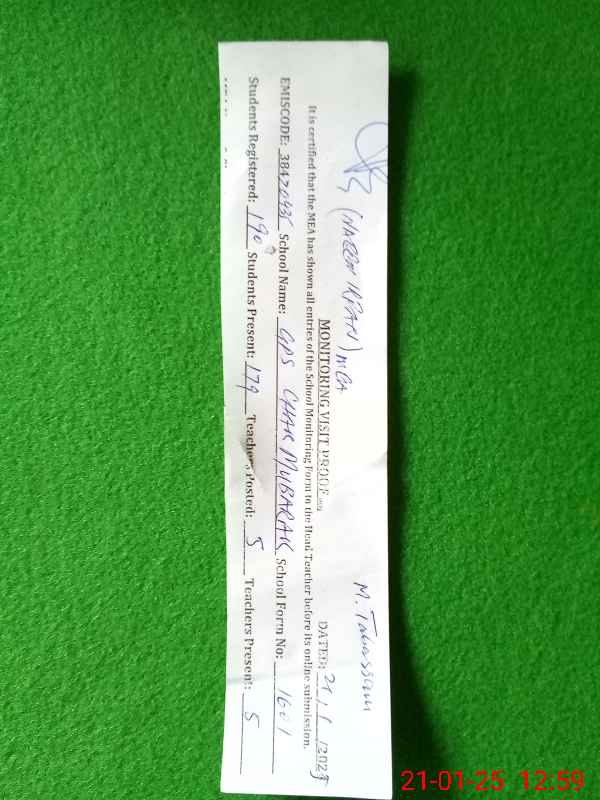 (HAROON IRFAN) MEA
M. Tabassam
MONITORING VISIT PROOF
DATED: 21/1/2025
It is certified that the MEA has shown all entries of the School Monitoring Form to the Head Teacher before its online submission.
EMISCODE: School Name: GPS CHAK MUBARAK School Form No: 1601
Students Registered: 190 Students Present: 179 Teachers Posted: 5 Teachers Present: 5
21-01-25 12:59